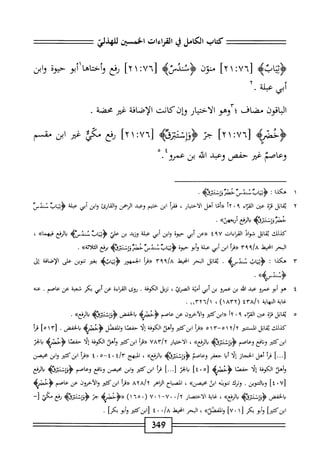 كتاب الكامل في القراءات الخمسين للهذليّ
﴿ثِيَابٌ﴾ [٢١:٧٦] منوّن ﴿سُندُسٌ﴾ [٢١:٧٦] رفع وأختاها١أبو حيوة وابن
أبي عبلة .٢
الباقون مضاف ؛٣وهو الاختيار وإن كانت الإضافة غير محضة .
﴿خُضْرٍ﴾ [٢١:٧٦] جرّ ﴿وَإِسْتَبْرَقٌ﴾ [٢١:٧٦] رفع مكّيٌّ غير ابن مقسم
وعاصمٌ غير حفص وعبد الله بن عمرو٤.٥
١ هكذا : ﴿ثِيَابٌ سُندُسٌ خُضْرٌ وَإِسْتَبْرَقٌ﴾ .
٢ يُقابل قرّة عين القرّاء ٢٠٩أ «أمّا أهل الاختيار ، فقرأ ابن خثيم وعبد الرحمن والقارئ وابن أبي عبلة ﴿ثِيَابٌ سُندُسٌ
خُضْرٌ وَإِسْتَبْرَقٌ﴾ بالرفع أربعهنّ» .
كذلك يُقابل شواذّ القراءات ٤٩٧ «عن أبي حيوة وابن أبي عبلة وزيد بن عليّ ﴿ثِيَابٌ سُندُسٌ﴾ بالرفع فيهما» ،
البحر المحيط ٣٩٩/٨ «قرأ ابن أبي عبلة وأبو حيوة ﴿ثِيَابٌ سُندُسٌ خُضْرٌ وَإِسْتَبْرَقٌ﴾ برفع الثلاثة» .
٣ هكذا : ﴿ثِيَابُ سُندُسٍ﴾ . يُقابل البحر المحيط ٣٩٩/٨ «قرأ الجمهور ﴿ثِيَابُ﴾ بغير تنوين على الإضافة إلى
﴿سُندُسٍ﴾» .
٤ هو أبو عمرو عبد الله بن عمرو بن أبي أميّة البصريّ ، نزيل الكوفة . روى القراءة عن أبي بكر شعبة عن عاصم . عنه
غاية النهاية ٤٣٨/١ (١٨٣٢) ، ٣٢٦/١، ١.
٥ يُقابل قرّة عين القرّاء ٢٠٩أ «ابن كثير والآخرون عن عاصم ﴿خُضْرٍ﴾ بالخفض ﴿وَإِسْتَبْرَقٌ﴾ بالرفع» .
كذلك يُقابل المستنير ٥١٢/٢-٥١٣ «قرأ ابن كثير وأهلُ الكوفة إلّا حفصًا والمفضّل ﴿خُضْرٍ﴾ بالخفض . [٥١٣] قرأ
ابن كثير ونافع وعاصم ﴿وَإِسْتَبْرَقٌ﴾ بالرفع» ، الاختيار ٧٨٣/٢ «قرأ ابن كثير وأهلُ الكوفة إلّا حفصًا ﴿خُضْرٍ﴾ بالجرّ
[...] قرأ أهل الحجاز إلّا أبا جعفر وعاصمٌ ﴿وَإِسْتَبْرَقٌ﴾ بالرفع» ، المبهج ٤٠٤/٣-٤٠٥ «قرأ ابن كثير وابن محيصن
وأهلُ الكوفة إلّا حفصًا ﴿خُضْرٍ﴾ [٤٠٥] بالجرّ [...] قرأ ابن كثير وابن محيصن ونافع وعاصم ﴿وَإِسْتَبْرَقٌ﴾ بالرفع
[٤٠٧] وبالتنوين . وترك تنوينَه ابنُ محيصن» ، المصباح الزاهر ٨٢٨/٢ «قرأ ابن كثير والآخرون عن عاصم ﴿خُضْرٍ﴾
بالخفض ﴿وَإِسْتَبْرَقٌ﴾ بالرفع» ، غاية الاختصار ٧٠١-٧٠٠/٢ (١٦٥٠) «﴿خُضْرٍ﴾ جرٌّ ﴿وَإِسْتَبْرَقٌ﴾ رفع مكّيّ [-
ابن كثير] وأبو بكر [٧٠١] والمفضّل» ، البحر المحيط ٤٠٠/٨ [ابن كثير وأبو بكر] .
349